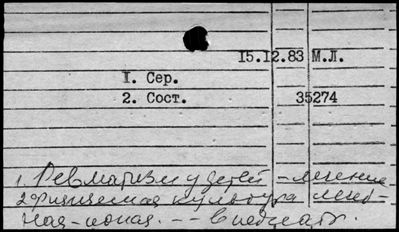 15.12.83 М.Л.
1. Сер.
2. Сост. 35274
1. Ревматизм у детей - лечение
2. Физическая культура лечеб-
ная - - в педиатр.